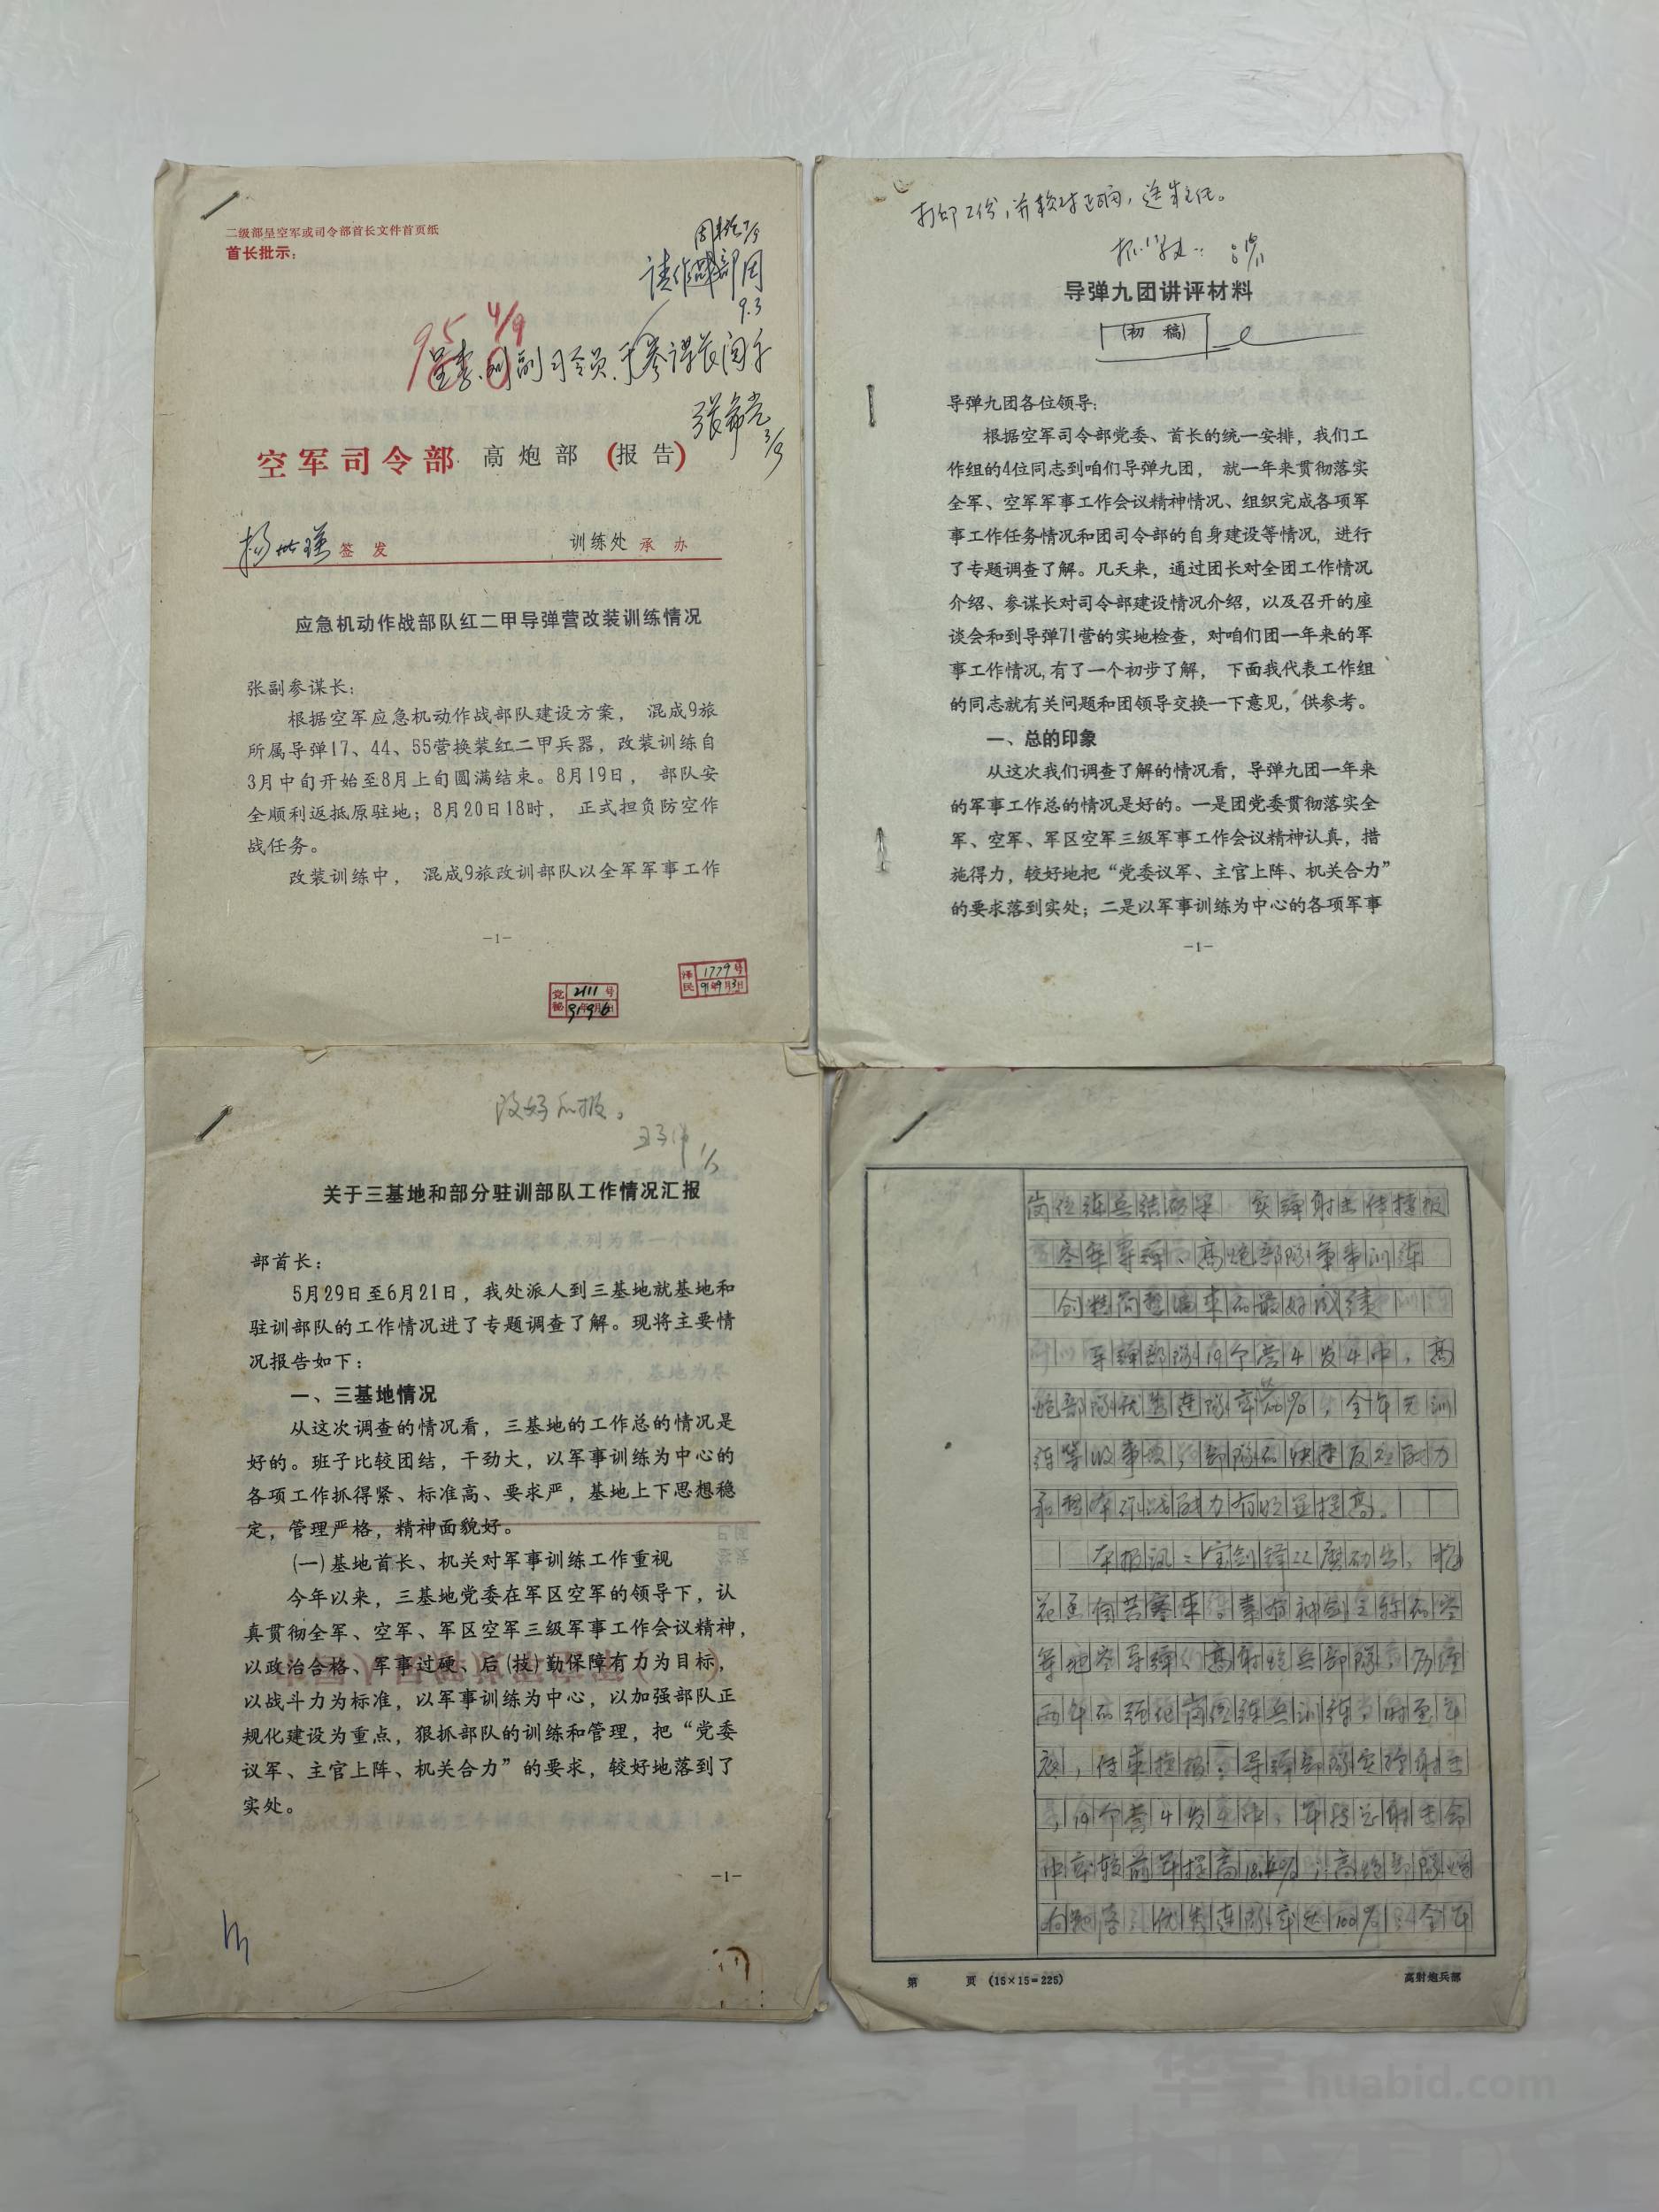 二级部呈空军或司令部首长文件首页纸
首长批示：
请作战部周
9.3
4/9
呈李 副司令员、于参谋长阅示
3/9
空军司令部 高炮部 (报告)
签发 训练处 承办
应急机动作战部队红二甲导弹营改装训练情况
张副参谋长：
根据空军应急机动作战部队建设方案， 混成9旅
所属导弹17、44、55营换装红二甲兵器，改装训练自
3月中旬开始至8月上旬圆满结束。8月19日， 部队安
全顺利返抵原驻地；8月20日18时， 正式担负防空作
战任务。
改装训练中， 混成9旅改训部队以全军军事工作
—1—
党秘 2111 号
泽民 1779 号
91年9月3日
打印 份，并校对正确，送 主任。
导弹九团讲评材料
(初 稿)
导弹九团各位领导：
根据空军司令部党委、首长的统一安排，我们工
作组的4位同志到咱们导弹九团， 就一年来贯彻落实
全军、空军军事工作会议精神情况、组织完成各项军
事工作任务情况和团司令部的自身建设等情况，进行
了专题调查了解。几天来，通过团长对全团工作情况
介绍、参谋长对司令部建设情况介绍，以及召开的座
谈会和到导弹71营的实地检查，对咱们团一年来的军
事工作情况，有了一个初步了解， 下面我代表工作组
的同志就有关问题和团领导交换一下意见，供参考。
一、总的印象
从这次我们调查了解的情况看，导弹九团一年来
的军事工作总的情况是好的。一是团党委贯彻落实全
军、空军、军区空军三级军事工作会议精神认真，措
施得力，较好地把“党委议军、主官上阵、机关合力”
的要求落到实处；二是以军事训练为中心的各项军事
—1—
改好 报。
关于三基地和部分驻训部队工作情况汇报
部首长：
5月29日至6月21日，我处派人到三基地就基地和
驻训部队的工作情况进了专题调查了解。现将主要情
况报告如下：
一、三基地情况
从这次调查的情况看，三基地的工作总的情况是
好的。班子比较团结，干劲大，以军事训练为中心的
各项工作抓得紧、标准高、要求严，基地上下思想稳
定，管理严格，精神面貌好。
(一)基地首长、机关对军事训练工作重视
今年以来，三基地党委在军区空军的领导下，认
真贯彻全军、空军、军区空军三级军事工作会议精神，
以政治合格、军事过硬、后(技)勤保障有力为目标，
以战斗力为标准，以军事训练为中心，以加强部队正
规化建设为重点，狠抓部队的训练和管理，把“党委
议军、主官上阵、机关合力”的要求，较好地落到了
实处。
—1—
岗位练兵结硕果 实弹射击传捷报
空军导弹、高炮部队军事训练
创 来的最好成绩
导弹部队19个营4发4中，高
炮部队优秀连队率 %，全年无训
练等级事故，部队的快速反应能力
和整体作战能力有明显提高。
本报讯：宝剑锋从磨砺出，梅
花香自苦寒来。素有神剑之称的空
军地空导弹、高射炮兵部队，历经
两年的强化岗位练兵训练，时至年
底，传来捷报：导弹部队实弹射击
，19个营4发 中，年度总射击命
中率较前年提高18.4%；高炮部队
优秀连队率达100%，全年
第 页 (15×15=225) 高射炮兵部
华宇 huabid.com